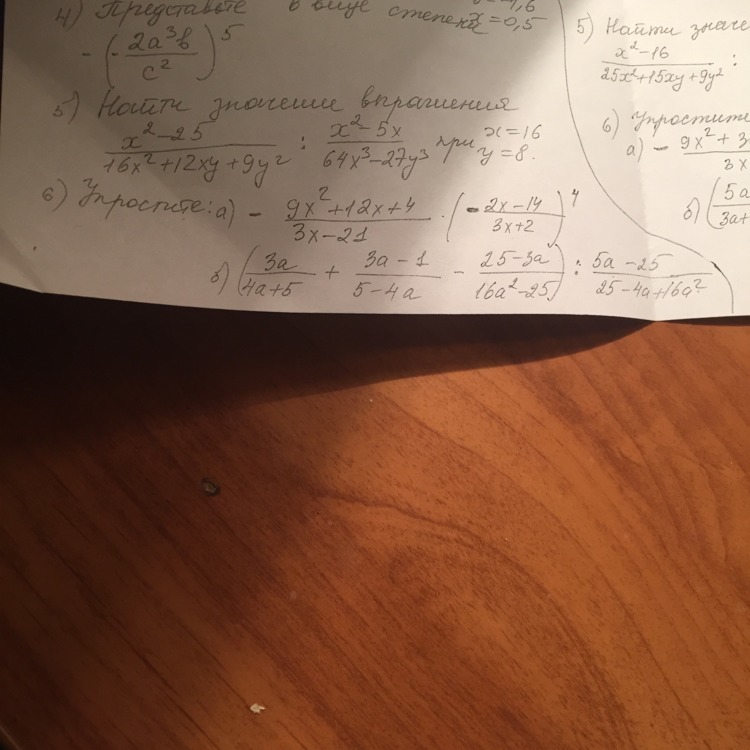 4) Представьте в виде степени x = 0,5
- (- 2a³b / c²)⁵
5) Найти значение выражения
x² - 25 / 16x² + 12xy + 9y² : x² - 5x / 64x³ - 27y³ при x = 16 y = 8.
6) Упростите: а) - 9x² + 12x + 4 / 3x - 21 · (- 2x - 14 / 3x + 2)⁴
б) (3a / 4a + 5 + 3a - 1 / 5 - 4a - 25 - 3a / 16a² - 25) : 5a - 25 / 25 - 4a + 16a²
5) Найти значе
x² - 16 / 25x² + 15xy + 9y² :
6) Упростите
а) - 9x² + 3 / 3x
б) (5a / 3a +